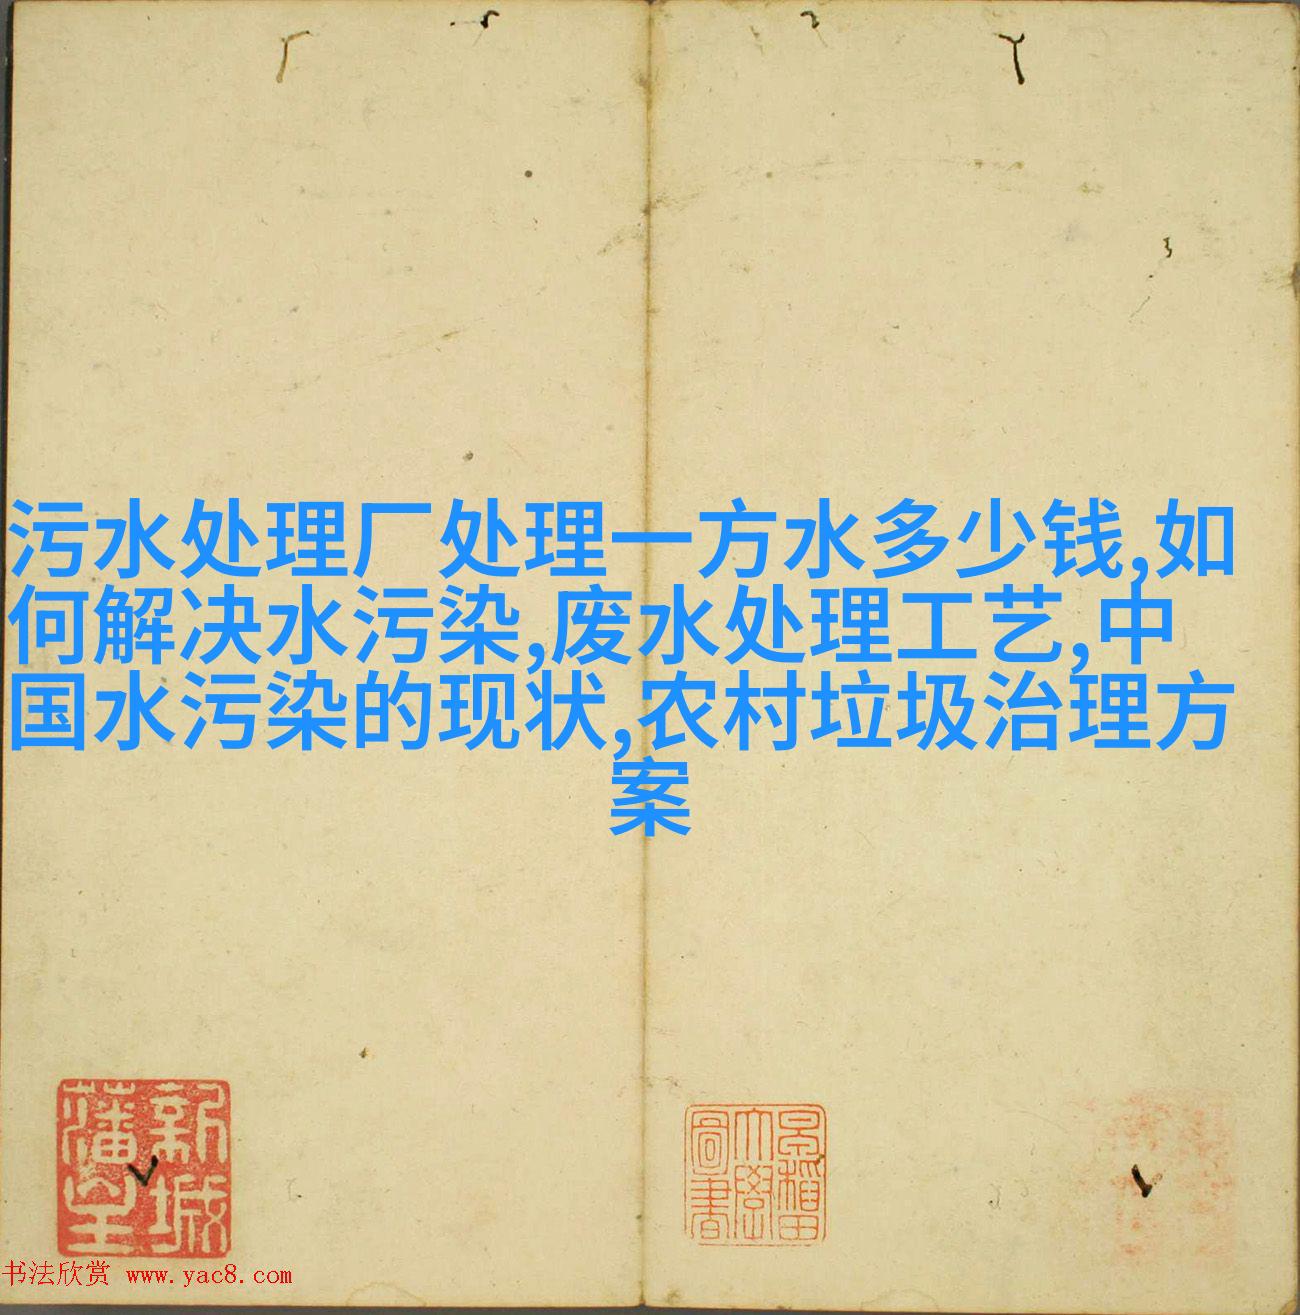 污水处理厂处理一方水多少钱,如
何解决水污染,废水处理工艺,中
国水污染的现状,农村垃圾治理方
案
新城
藩室
早稲田
大學
圖書
书法欣赏 www.yac8.com